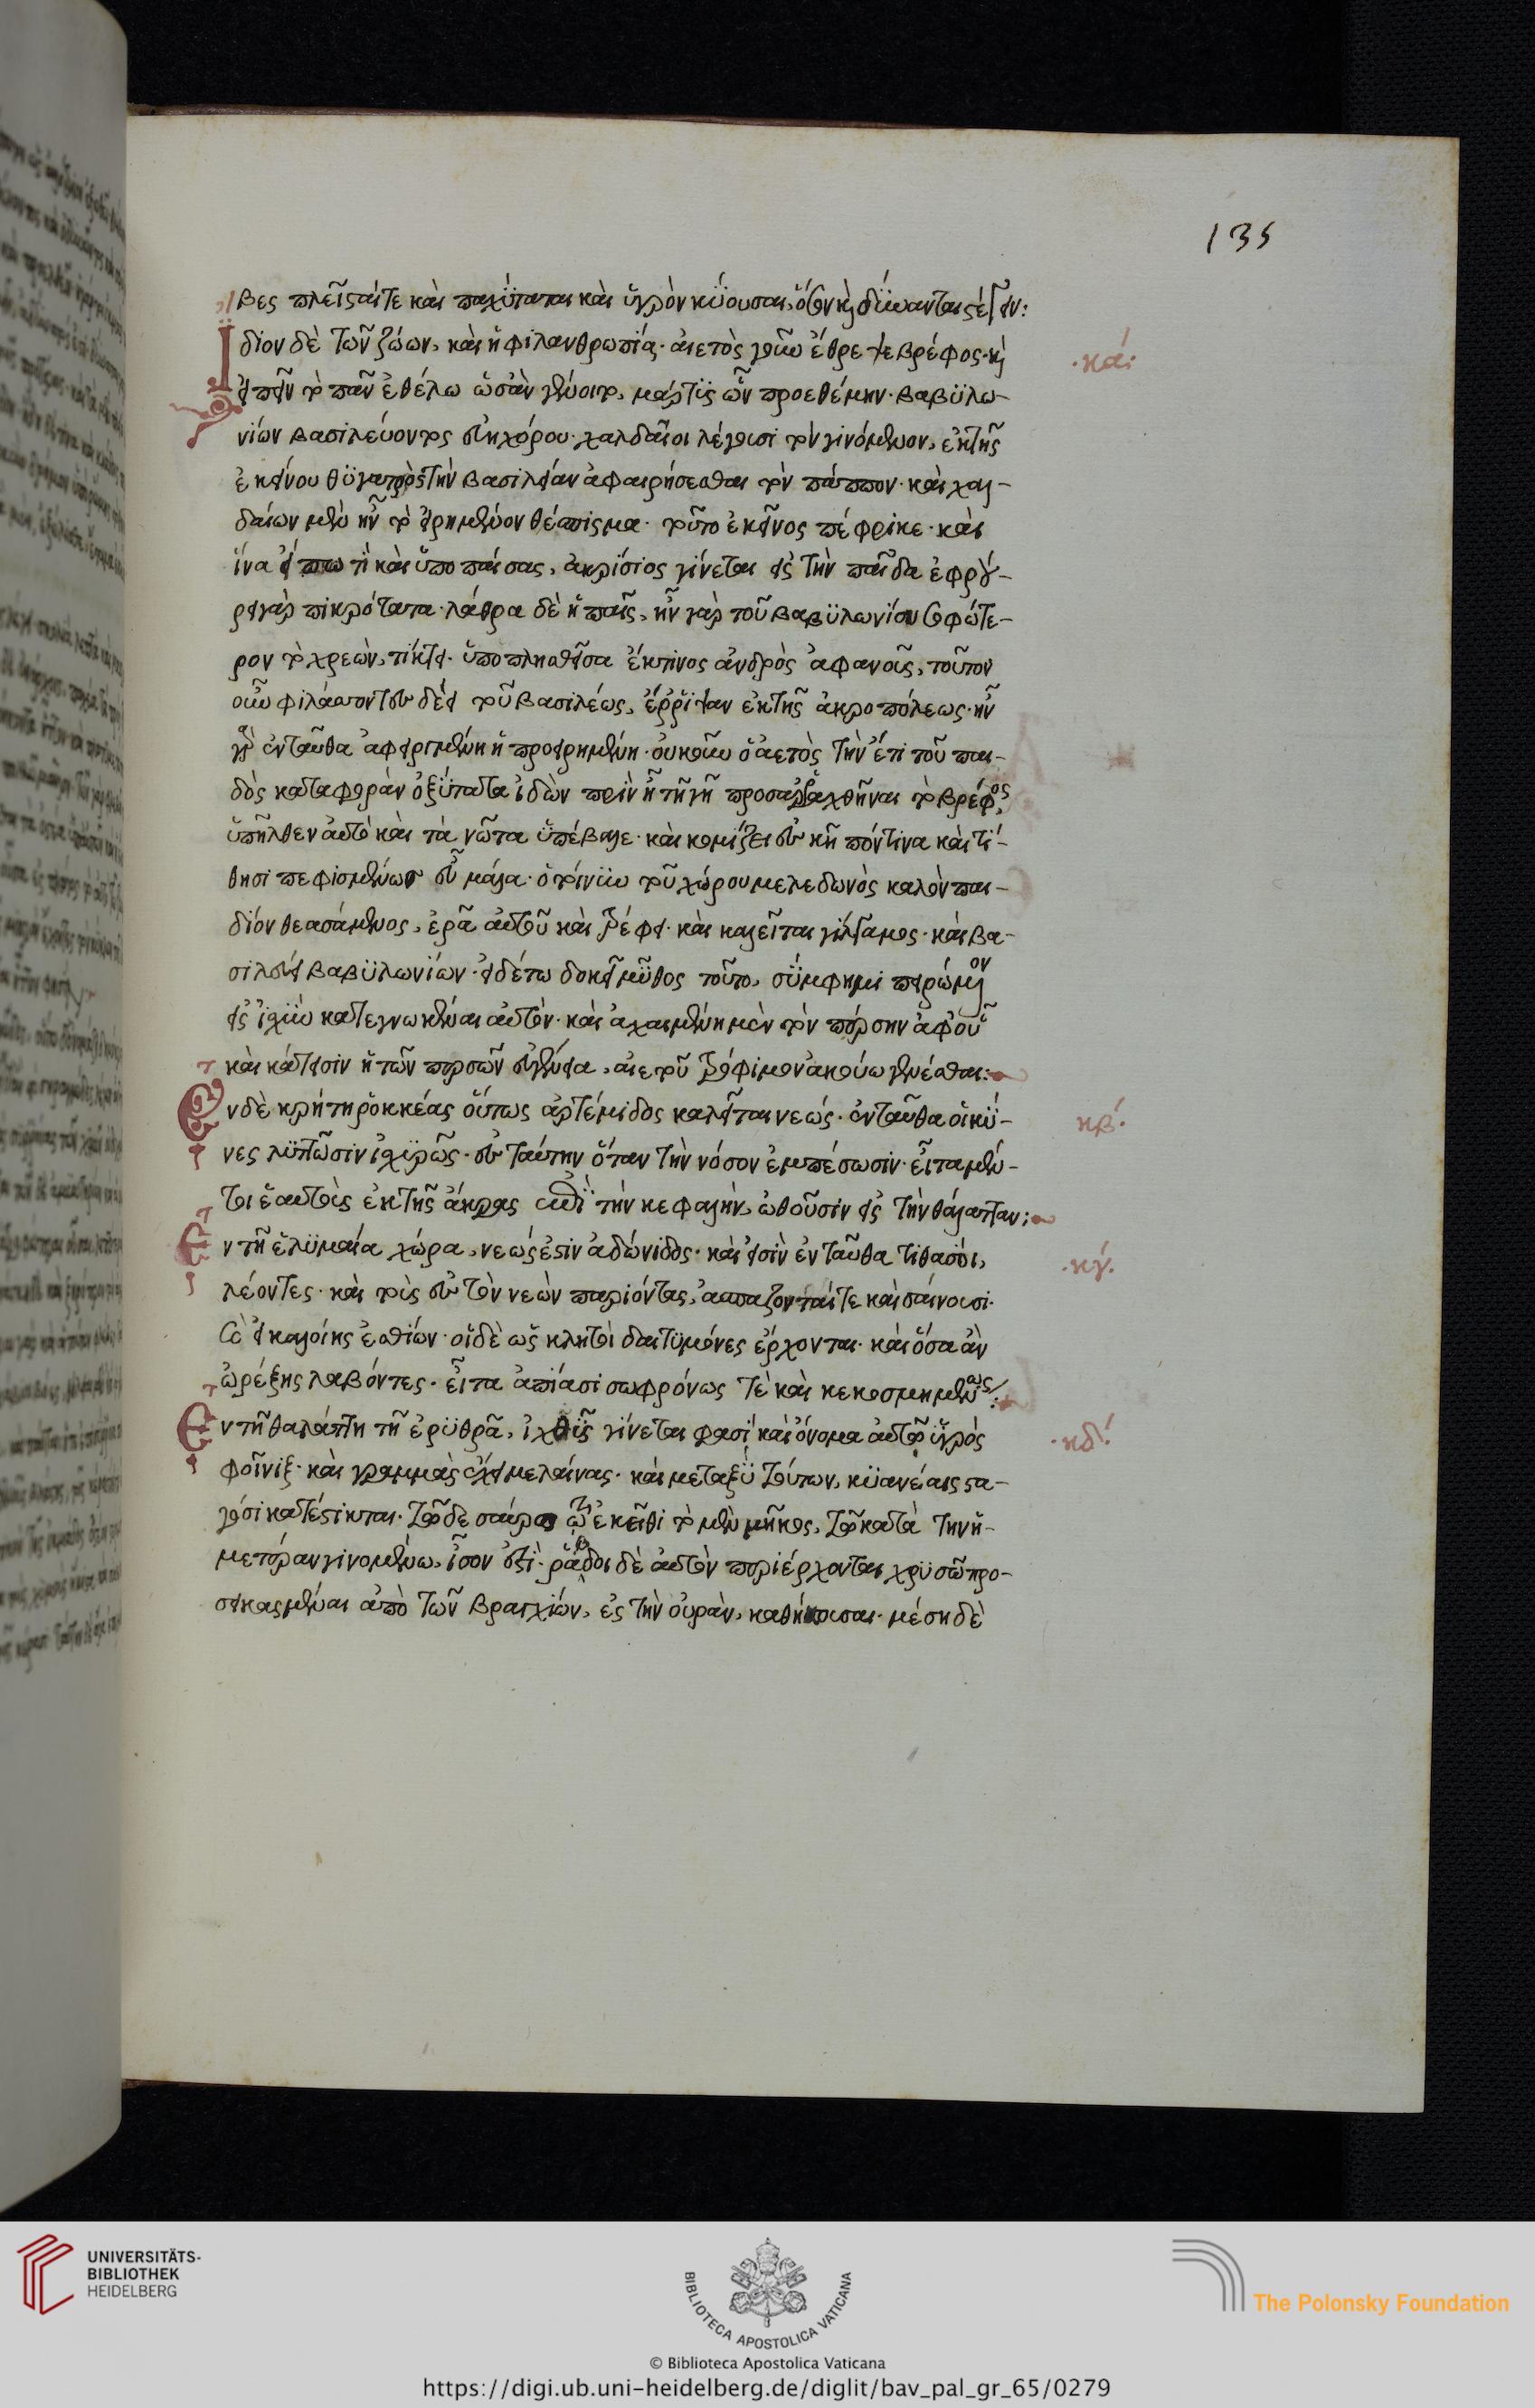 135
βες πλεῖσταί τε καὶ παχύταται καὶ ὑγρὸν κύουσαι, ὅθεν καὶ δύνανται στέγειν:
Ἴδιον δὲ τῶν ζώων, καὶ ἡ φιλανθρωπία· ἀετὸς γοῦν ἔθρεψε βρέφος· καὶ
·κά·
εἰπεῖν τὸ πᾶν ἐθέλω ὡς ἂν γένοιτο, μάρτυς ὧν προεθέμην· βαβυλω-
νίων βασιλεύοντος σευηχόρου· χαλδαῖοι λέγουσι τὸν γινόμενον, ἐκ τῆς
ἐκείνου θυγατρὸς τὴν βασιλείαν ἀφαιρήσεσθαι τὸν πάππον· καὶ χαλ-
δαίων μὲν ἦν τὸ εἰρημένον θέσπισμα· τοῦτο ἐκεῖνος πέφρικε· καὶ
ἵνα εἴπω τὶ καὶ ὑποπαίσας, ἀκρίσιος γίνεται εἰς τὴν παῖδα ἐφρού-
ρει γὰρ πικρότατα· λάθρα δὲ ἡ παῖς, ἦν γὰρ τοῦ βαβυλωνίου σοφώτε-
ρον τὸ χρεὼν, τίκτει· ὑποπλησθεῖσα ἔκ τινος ἀνδρὸς ἀφανοῦς, τοῦτον
οὖν φυλάττοντες δέει τοῦ βασιλέως, ἔρριψαν ἐκ τῆς ἀκροπόλεως· ἦν
γὰρ ἐνταῦθα ἀφειργμένη ἡ προειρημένη· οὐκοῦν ὁ ἀετὸς τὴν ἔτι τοῦ παι-
δὸς καταφορὰν ὀξύτατα ἰδὼν πρὶν ἢ τῇ γῇ προσαραχθῆναι τὸ βρέφος,
ὑπῆλθεν αὐτὸ καὶ τὰ νῶτα ὑπέβαλε· καὶ κομίζει ἐς κῆπόν τινα καὶ τί-
θησι πεφεισμένως εὖ μάλα· ὁ τοίνυν τοῦ χώρου μελεδωνὸς καλὸν παι-
δίον θεασάμενος, ἐρᾷ αὐτοῦ καὶ τρέφει· καὶ καλεῖται γίλγαμος· καὶ βα-
σιλεύει βαβυλωνίων· εἰ δέ τῳ δοκεῖ μῦθος τοῦτο, σύμφημι πειρώμενον
εἰς ἰσχὺν κατεγνωκέναι αὐτόν· καὶ ἀχαιμένη μὲν τὸν πέρσην ἀφ' οὗ
καὶ κάτεισιν ἡ τῶν περσῶν εὐγένεια, ἀετοῦ τρόφιμον ἀκούω γενέσθαι:
Ἐν δὲ κρήτῃ ῥοκκέας οὕτως ἀρτέμιδος καλεῖται νεώς· ἐνταῦθα οἱ κύ-
κβ·
νες λυττῶσιν ἰσχυρῶς· ἐς ταύτην ὅταν τὴν νόσον ἐμπέσωσιν· εἶτα μέν-
τοι ἑαυτοὺς ἐκ τῆς ἄκρας ἐπὶ τὴν κεφαλὴν, ὠθοῦσιν εἰς τὴν θάλατταν:
Ἐν τῇ ἐλυμαία χώρα, νεώς ἐστιν ἀδώνιδος· καὶ εἰσὶν ἐνταῦθα τιθασοὶ,
·κγ·
λέοντες· καὶ τοὺς ἐς τὸν νεὼν παριόντας, ἀσπάζονταί τε καὶ σαίνουσι·
σὺ εἰ καλοίης ἐσθίων· οἱ δὲ ὡς κλητοὶ δαιτυμόνες ἔρχονται· καὶ ὅσα ἂν
ὠρέξῃς λαβόντες· εἶτα ἀπίασι σωφρόνως τὲ καὶ κεκοσμημένως:
Ἐν τῇ θαλάττῃ τῇ ἐρυθρᾷ, ἰχθὺς γίνεται φασί, καὶ ὄνομα αὐτῷ ὑγρὸς
·κδ·
φοῖνιξ· καὶ γραμμὰς ἔχει μελαίνας· καὶ μεταξὺ τούτων, κυανέαις στα-
γόσι κατέστικται· τοῦ δὲ σαύρου τοῦ ἐκεῖθι τὸ μὲν μῆκος, τῷ κατὰ τὴν ἡ-
μετέραν γινομένῳ, ἴσον ἐστί· ῥάβδοι δὲ αὐτὸν περιέρχονται χρυσῷ προ-
σεικασμέναι ἀπὸ τῶν βραγχίων, ἐς τὴν οὐρὰν, καθήκουσαι· μέση δὲ
UNIVERSITÄTS-
BIBLIOTHEK
HEIDELBERG
BIBLIOTECA APOSTOLICA VATICANA
The Polonsky Foundation
© Biblioteca Apostolica Vaticana
https://digi.ub.uni-heidelberg.de/diglit/bav_pal_gr_65/0279